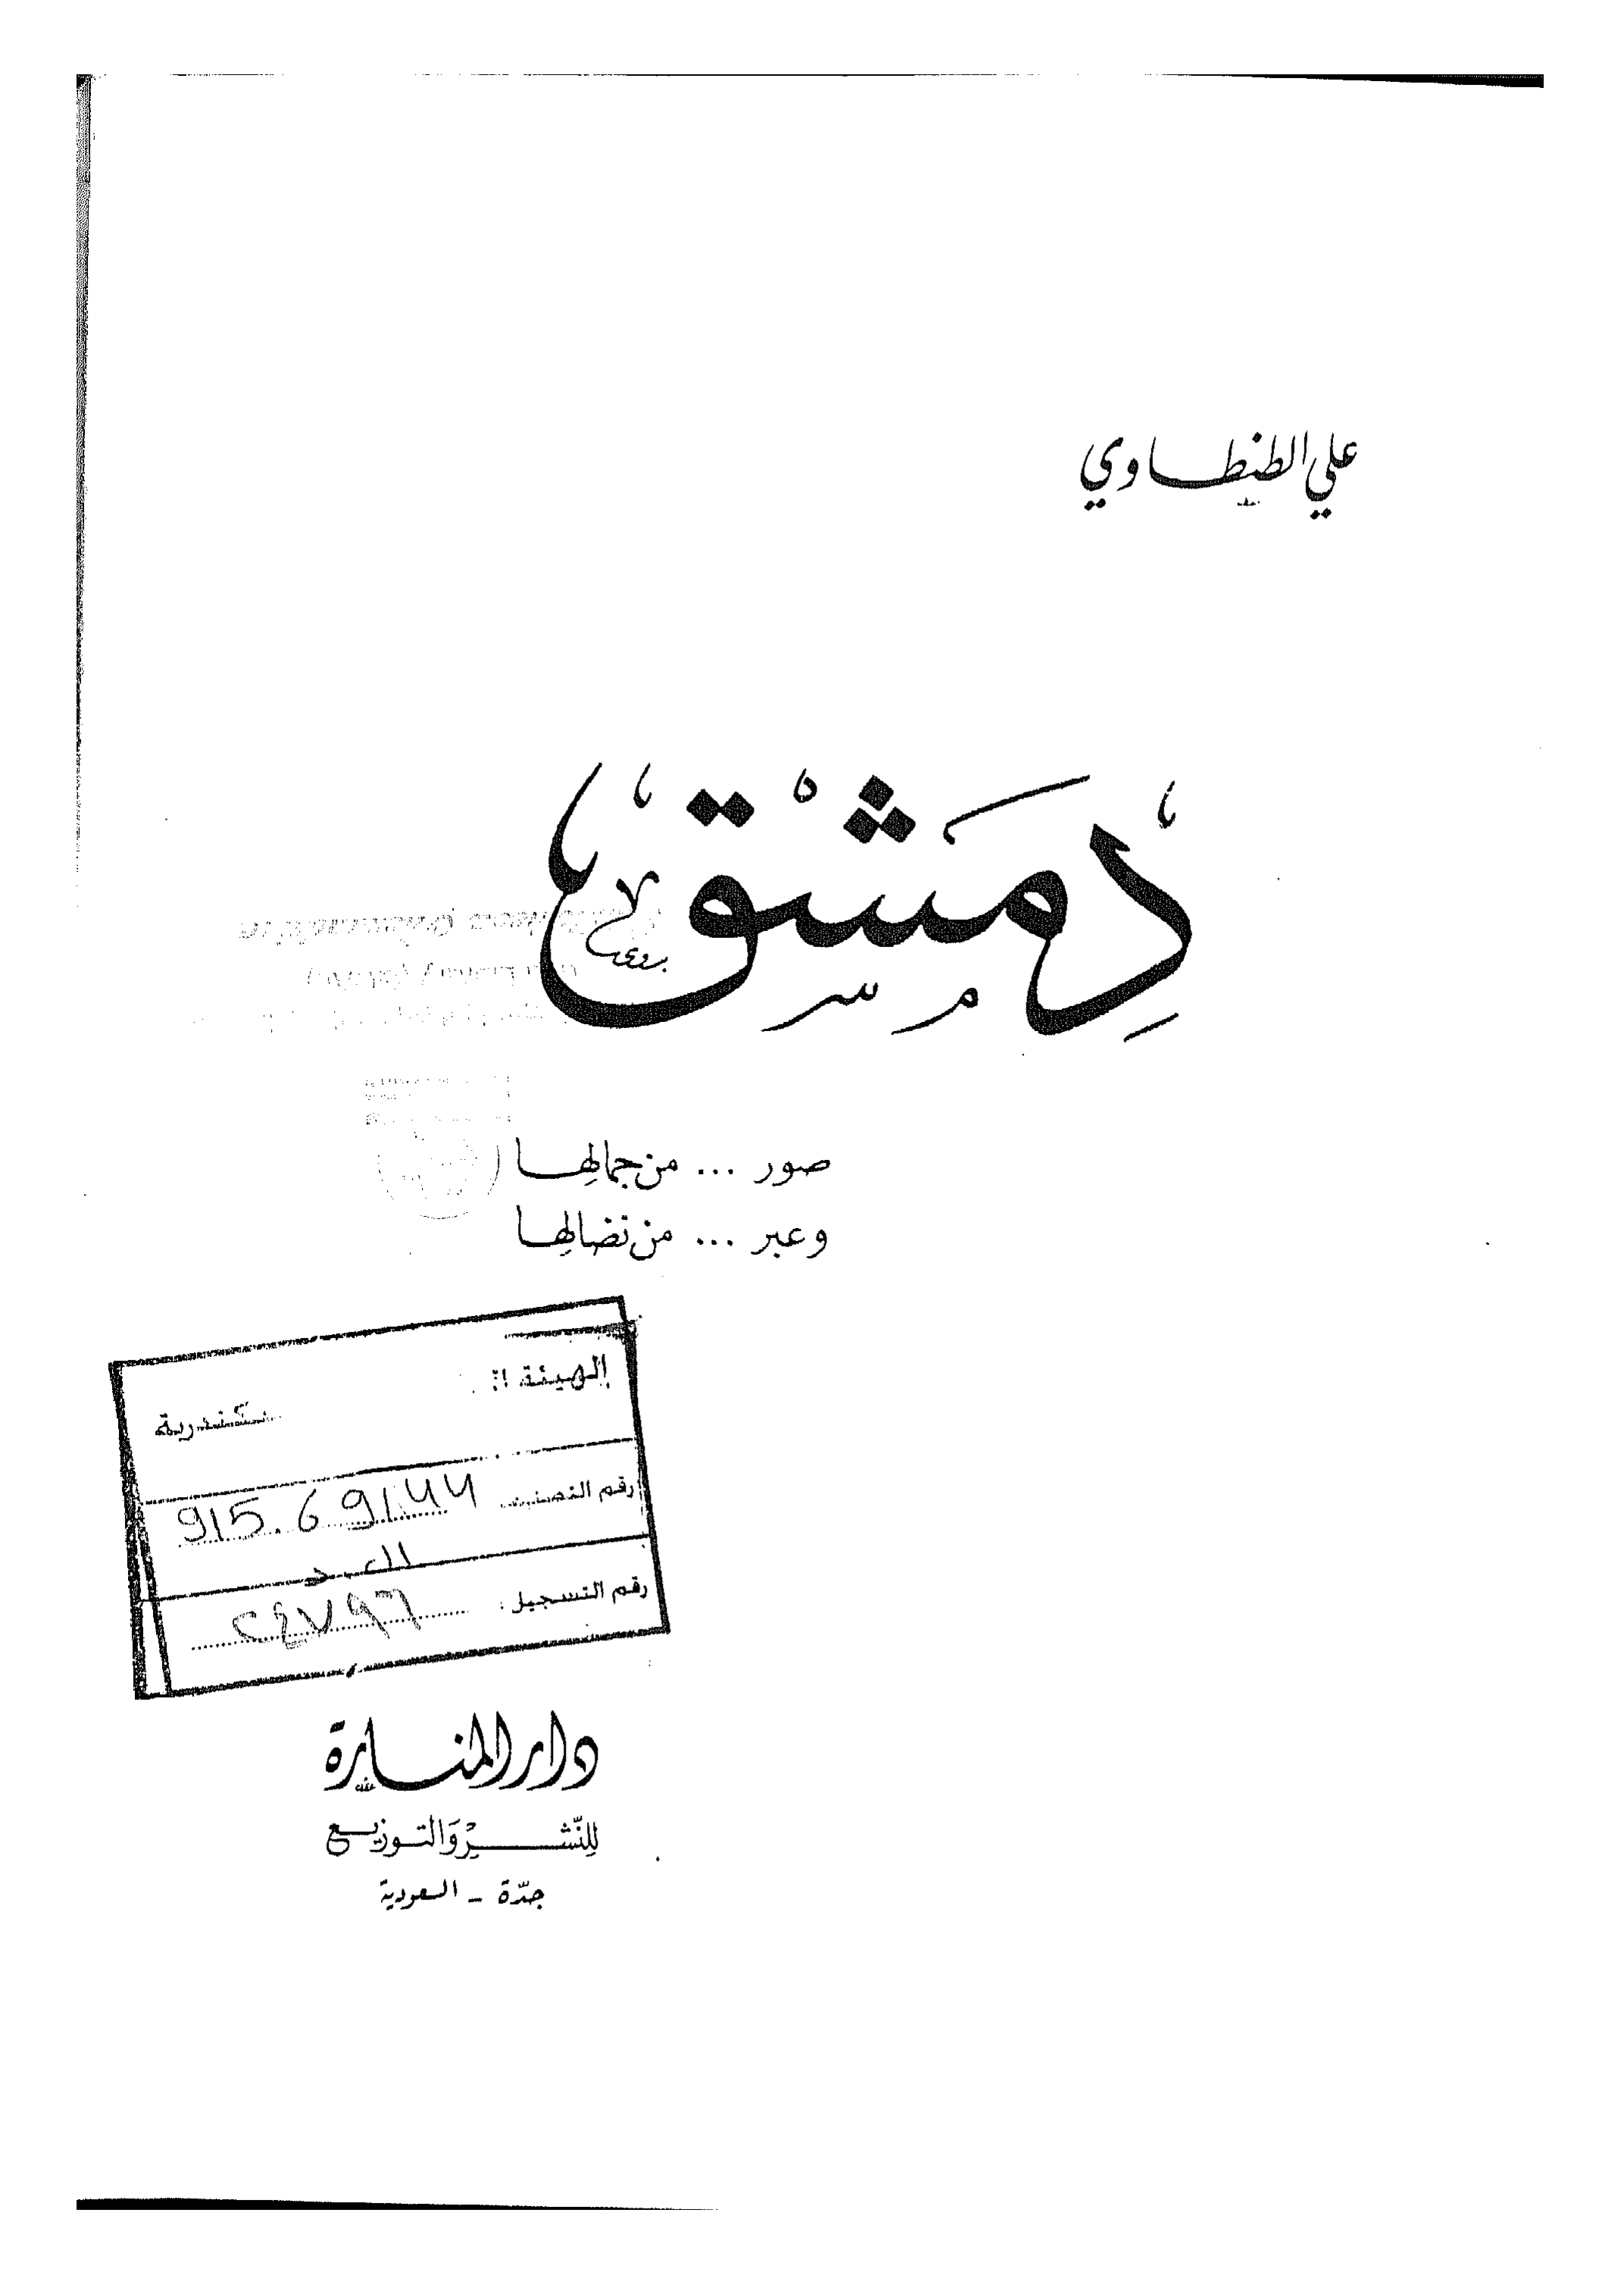 علي الطنطاوي
دِمَشْق
صور ... من جمالِها
وعبر ... من نضالِها
الهيئة
رقم التصنيف 915.69144
رقم التسجيل : ٢٤٧٩٦
دار المنارة
للنّشر وَالتوزيع
جدّة - السعودية